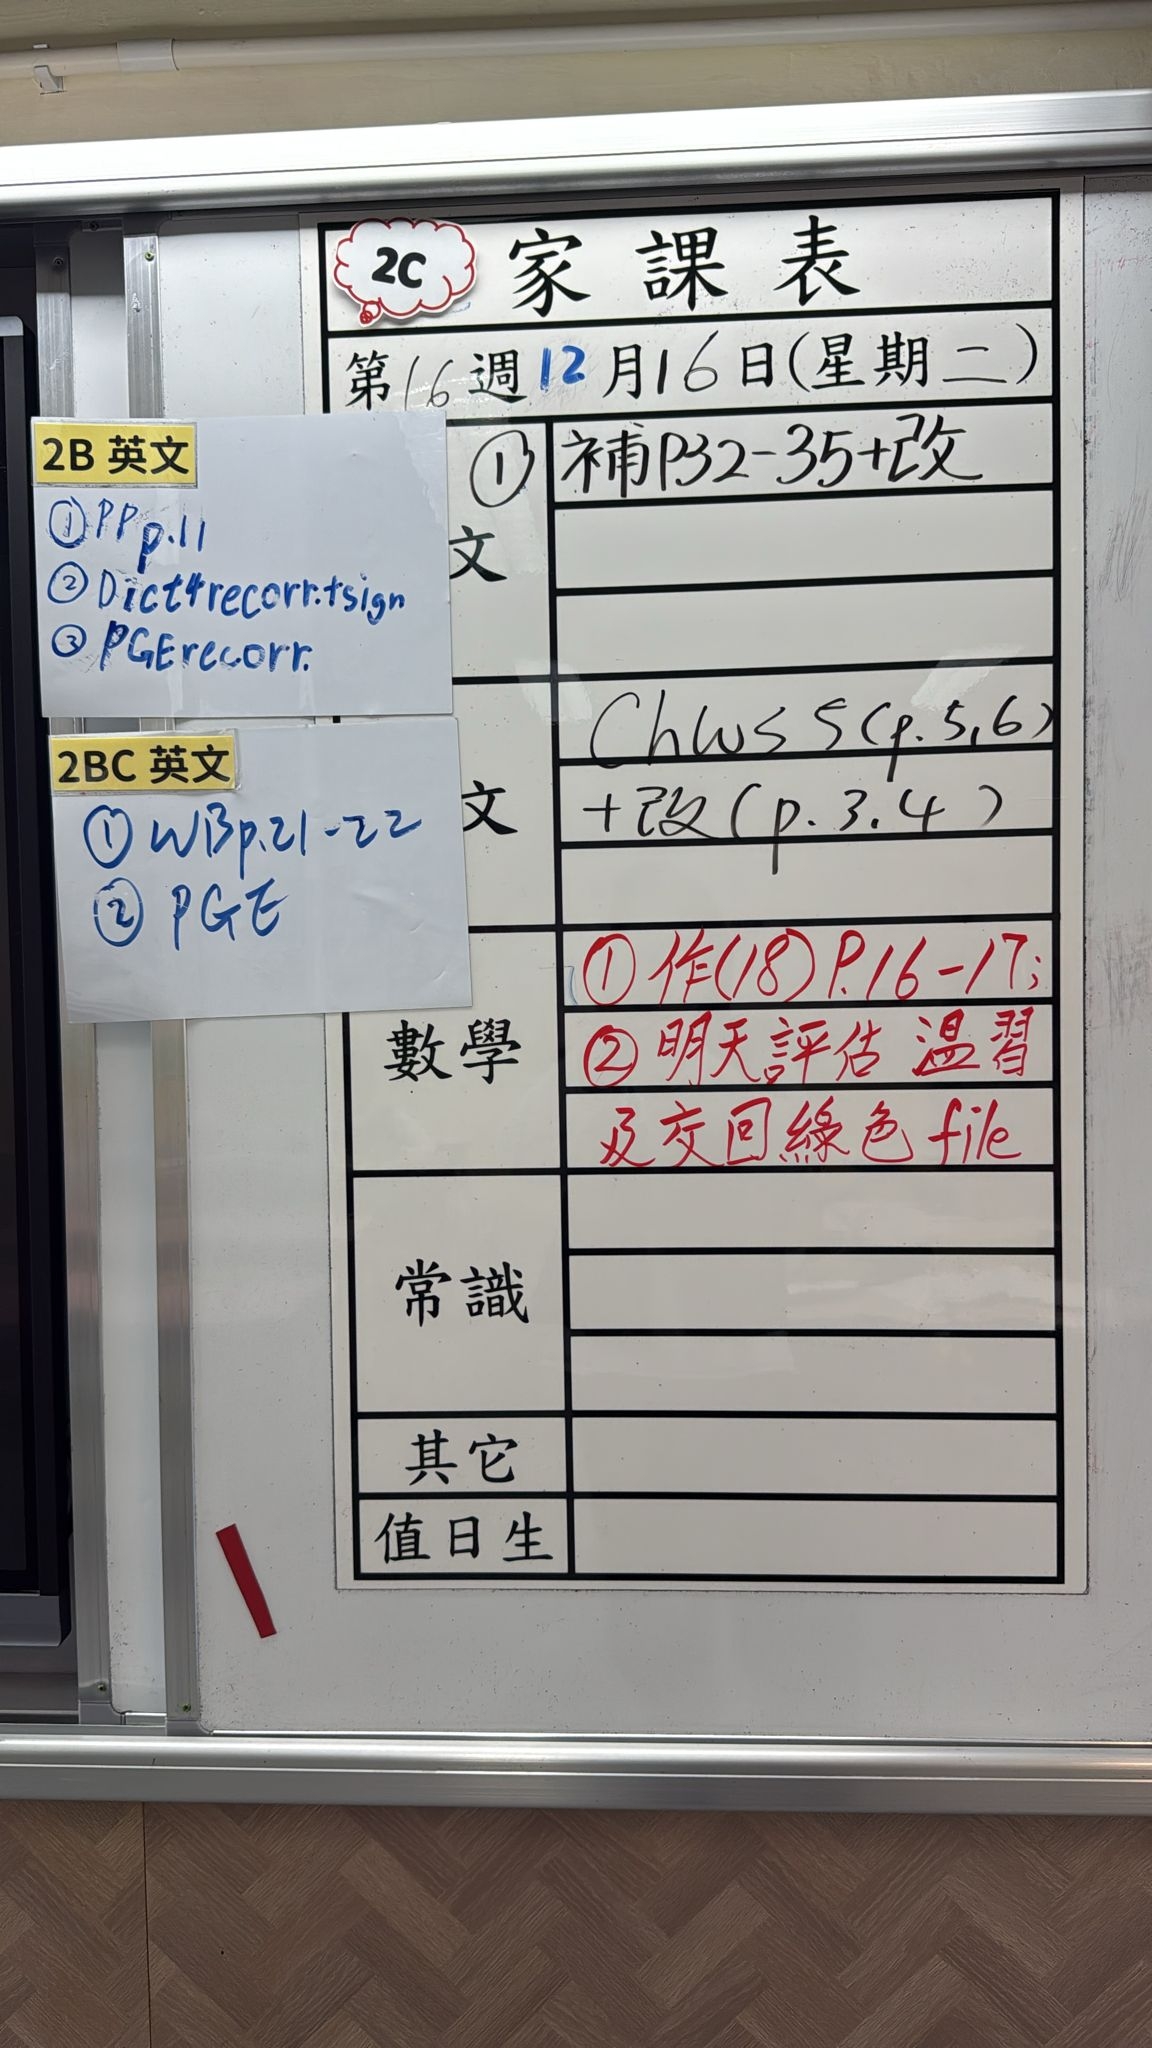 2C 家課表
第16週12月16日(星期二)
2B 英文
①PP p.11
②Dict4recorr.+sign
③PGErecorr.
2BC 英文
①WBp.21-22
②PGE
文
①補P32-35+改
文
ChWS 5(p.5,6)
+改(p.3.4)
數學
①作(18)P.16-17;
②明天評估 溫習
及交回綠色file
常識
其它
值日生